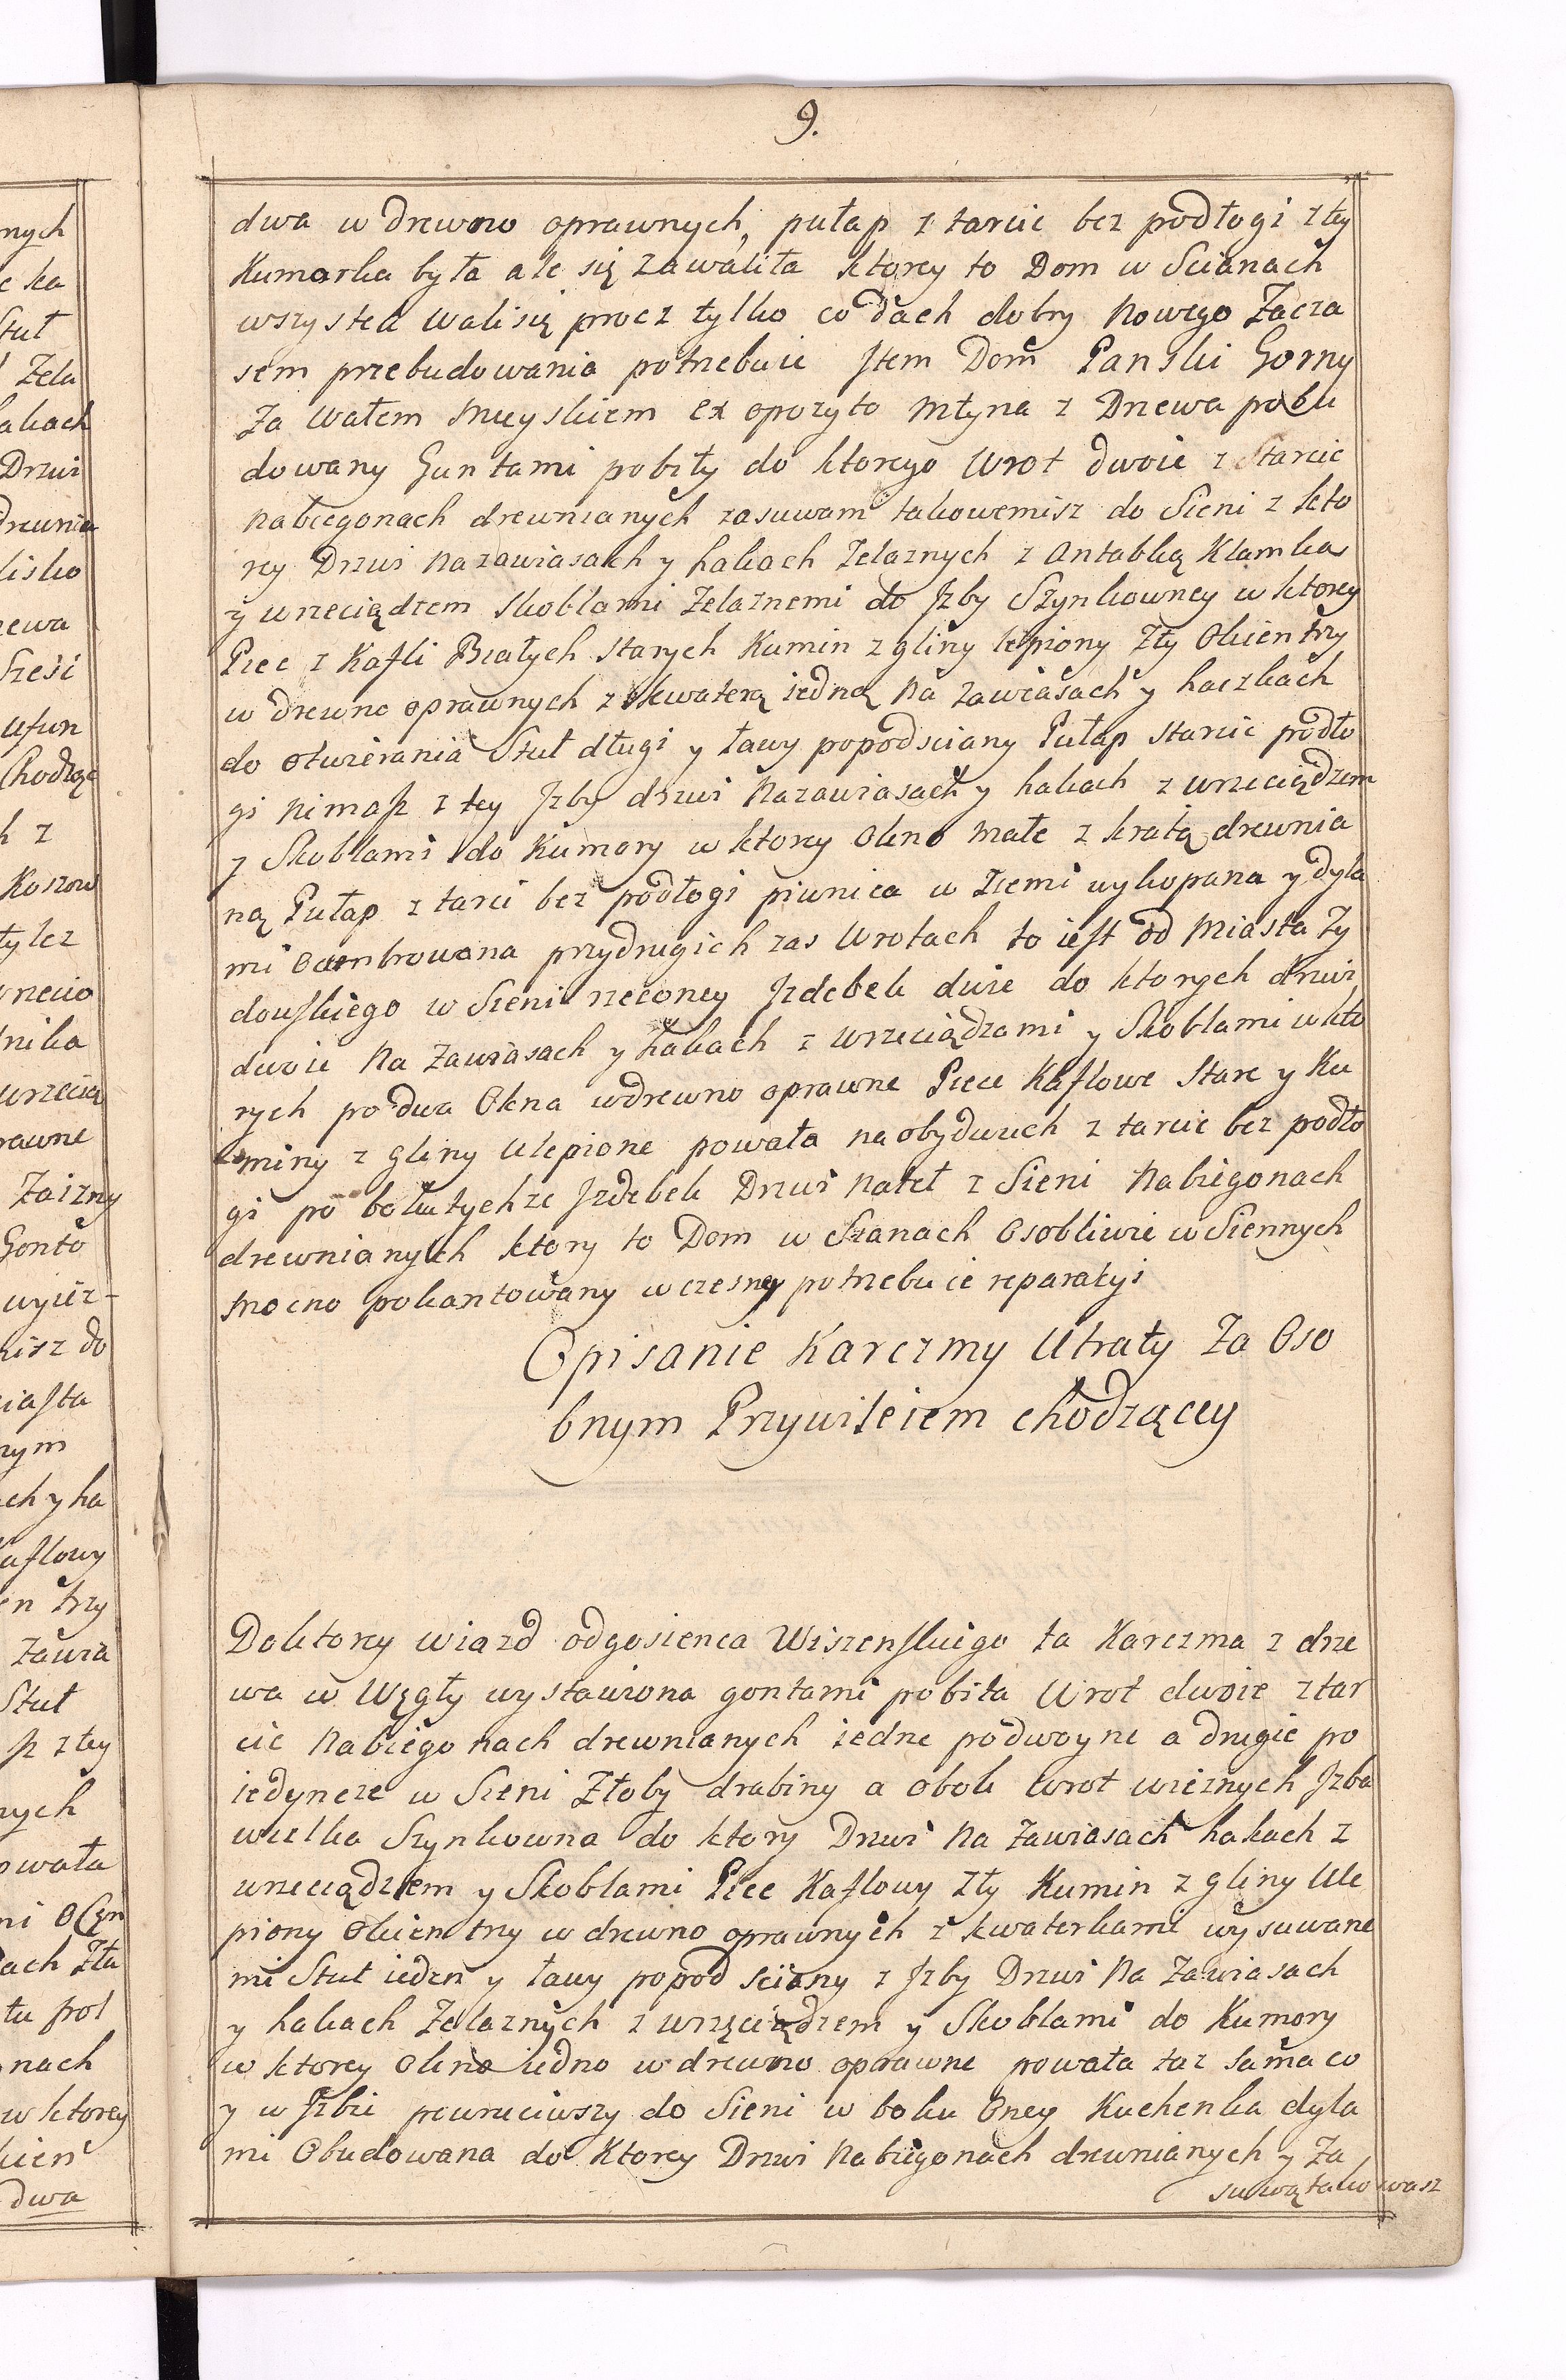 9.
dwa w drewno oprawnych, pułap z tarcic bez podłogi z tey
Kumorka była ale się zawaliła ktorey to Dom w Scianach
wszystek wali się procz tylko co dach dobry nowego Zacza
sem przebudowania potrzebuie Jtem Dom Panski Gorny
Za Wałem Mieyskiem ex opozyto Młyna z Drzewa pobu
dowany Guntami pobity do ktorego Wrot dwoie z Tarcic
na biegonach drewnianych zasuwam takowemisz do Sieni z kto
rey Drzwi na zawiasach y hakach Zelaznych z Antabką Klamką
y wrzeciądzem Skoblami Zelaznemi do Jzby Szynkowney w ktorey
Piec z Kafli Białych Starych Kumin z gliny lepiony Zły Okien trzy
w drewno oprawnych z kwaterą iedną na zawiasach y haczkach
do otwierania Stuł długi y ławy popod sciany Pułap z tarcic podło
gi nimasz z tey Jzby drzwi na zawiasach y hakach z wrzeciądzem
y Skoblami do Kumory w ktorey Okno małe z kratą drewnia
ną Pułap z tarci bez podłogi piwnica w Ziemi wykopana y dyla
mi ocembrowana przydrugich zas Wrotach to iest od Miasta Ży
dowskiego w Sieni rzeconey Jzdebek dwie do ktorych drzwi
dwoie na Zawiasach y hakach z wrzeciądzami y Skoblami w kto
rych po dwa Okna w drewno oprawne Piece Kaflowe Stare y Ku
miny z gliny Ulepione powała na obydwuch z tarcic bez podło
gi po boku tychze Jzdebek Drzwi na tył z Sieni na biegonach
drewnianych ktory to Dom w Scianach Osobliwie w Siennych
mocno pokantowany wczesney potrzebuie reparatyi
Opisanie Karczmy Utraty Za Oso
bnym Przywileiem chodzącey
Do ktorey wiazd od gosienca Wiszenskiego ta Karczma z drze
wa w Węgły wystawiona gontami pobita Wrot dwoie z tar
cic na biegonach drewnianych iedne podwoyne a drugie po
iedyncze w Sieni Złoby drabiny a obok wrot wieznych Jzba
wielka Szynkowna do ktory Drzwi na Zawiasach hakach z
wrzeciądzem y Skoblami Piec Kaflowy Zły Kumin z gliny Ule
piony Okien trzy w drewno oprawnych z kwaterkami wysuwane
mi Stuł ieden y ławy popod sciany z Jzby Drzwi na Zawiasach
y hakach Zelaznych z wrzęciądzem y Skoblami do Kumory
w ktorey Okno iedno w drewno oprawne powała taz sama co
y w Jzbie powruciwszy do Sieni w boku Oney Kuchenka dyla
mi Obudowana do Ktorey Drzwi na biegonach drewnianych y Za
suwą takowasz